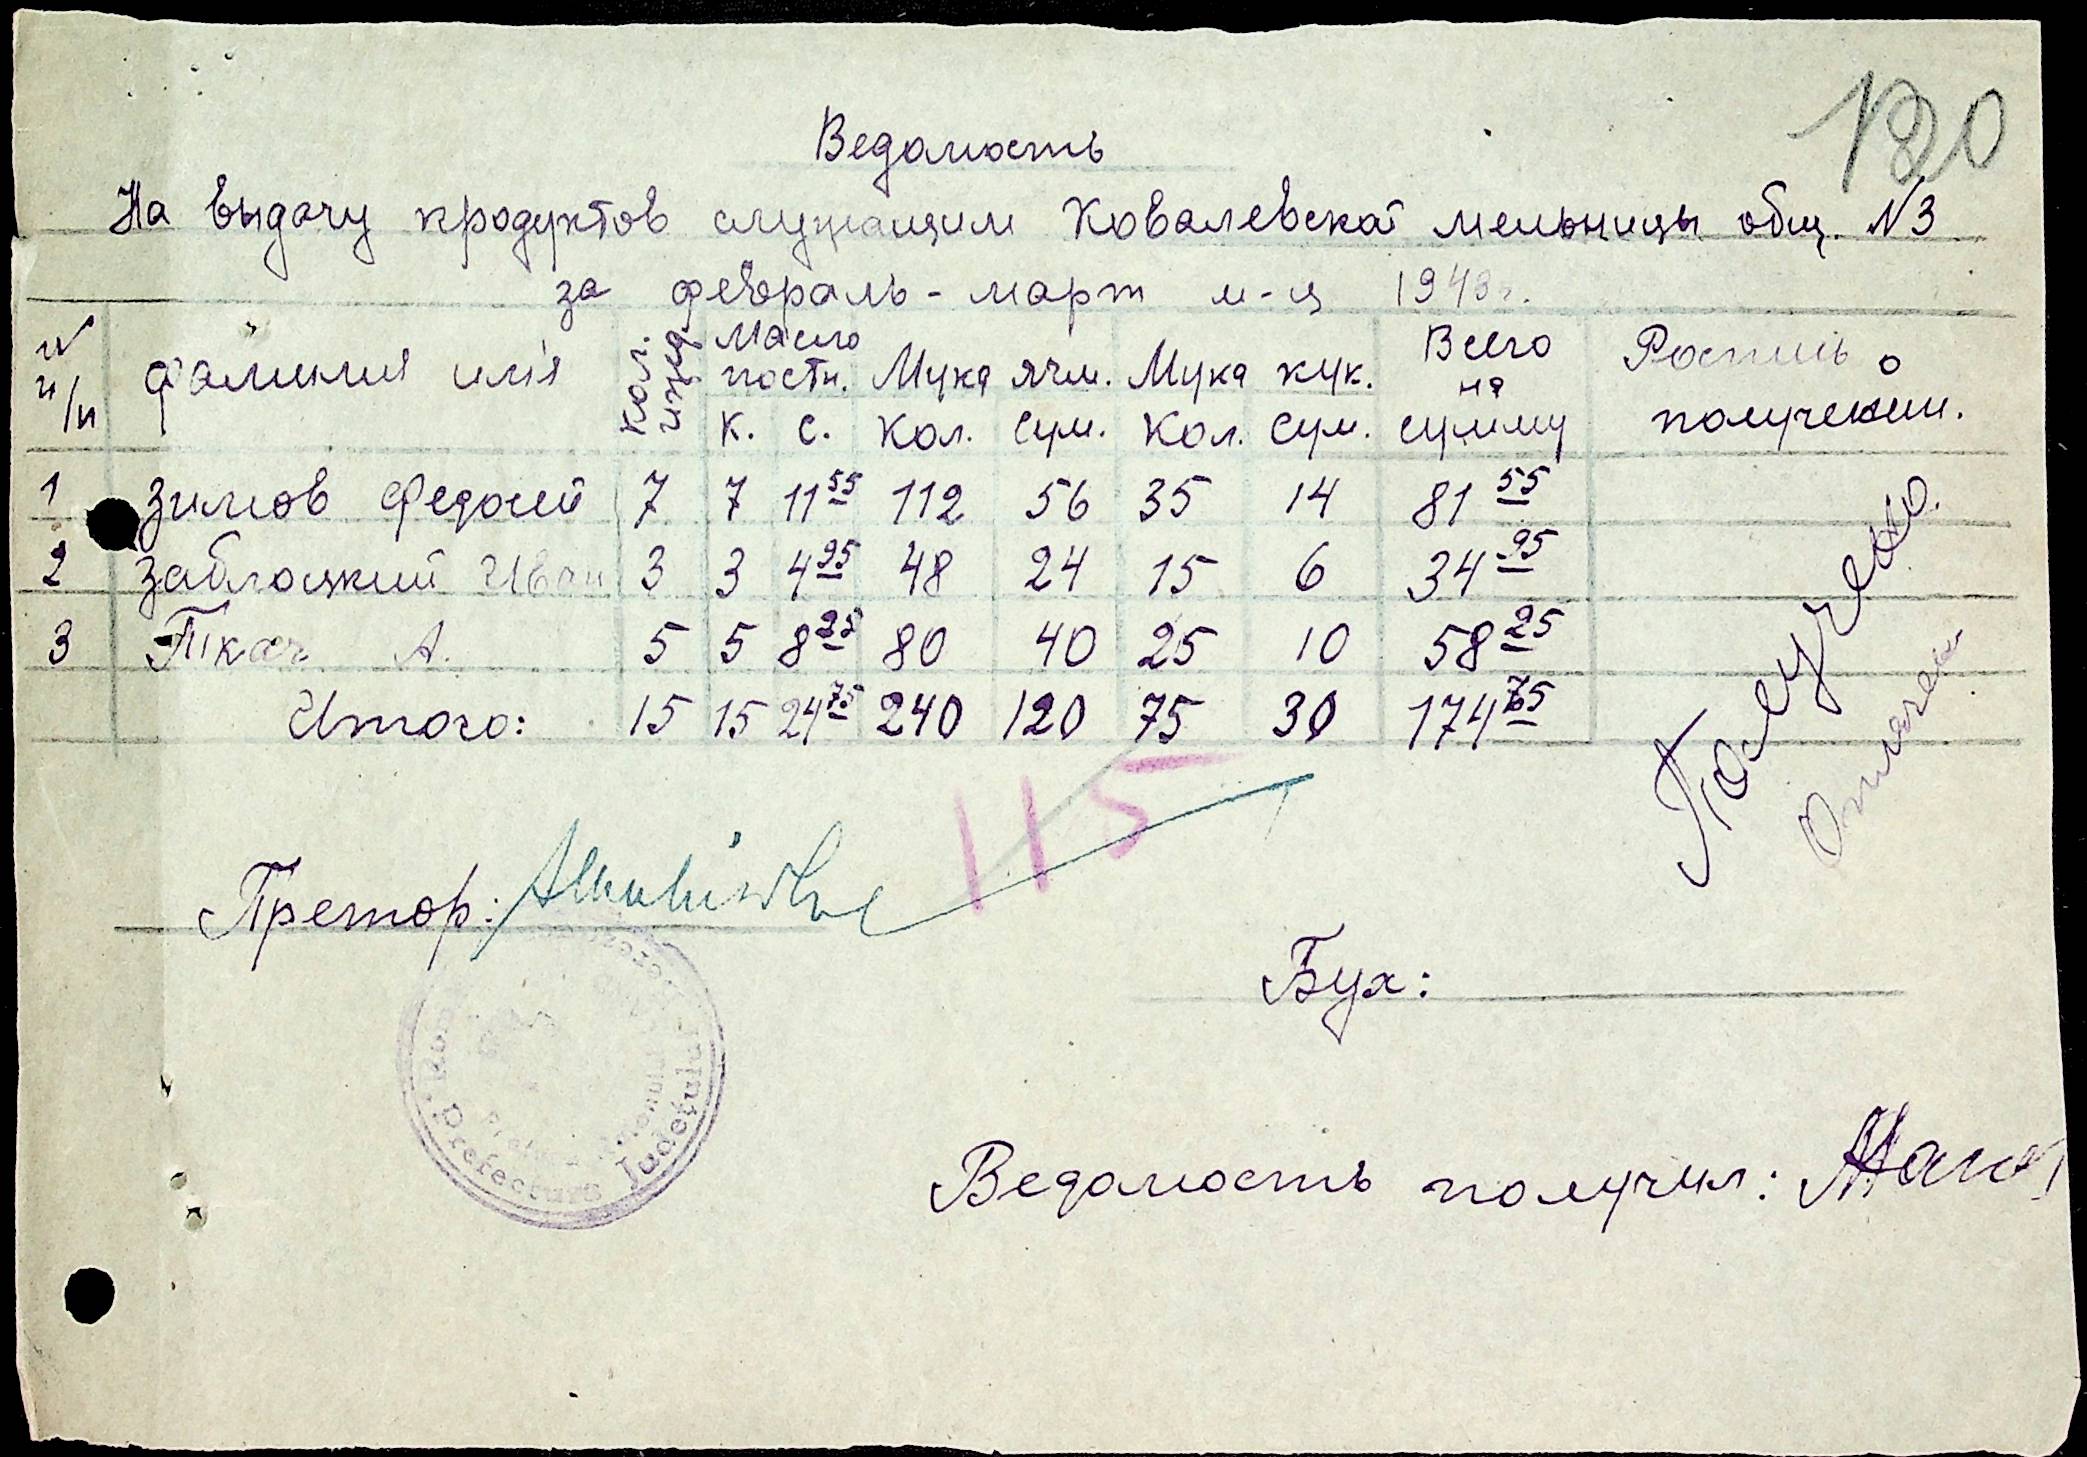 120
Ведомость
На выдачу продуктов служащим Ковалевской мельницы общ. N3
за февраль - март м-ц 1943 г.
N п/п фамилия имя кол. Масло постн. Мука ячм. Мука кук. Всего на сумму Роспись о получении.
К. С. Кол. Сум. Кол. Сум.
1 Зимов Федосей 7 7 11 55 112 56 35 14 81 55
2 Заблоцкий Иван 3 3 4 95 48 24 15 6 34 95
3 Ткач А. 5 5 8 25 80 40 25 10 58 25
Итого: 15 15 24 75 240 120 75 30 174 75
Получено.
115
Претор:
Бух:
Prefectura Județului
Ведомость получил: